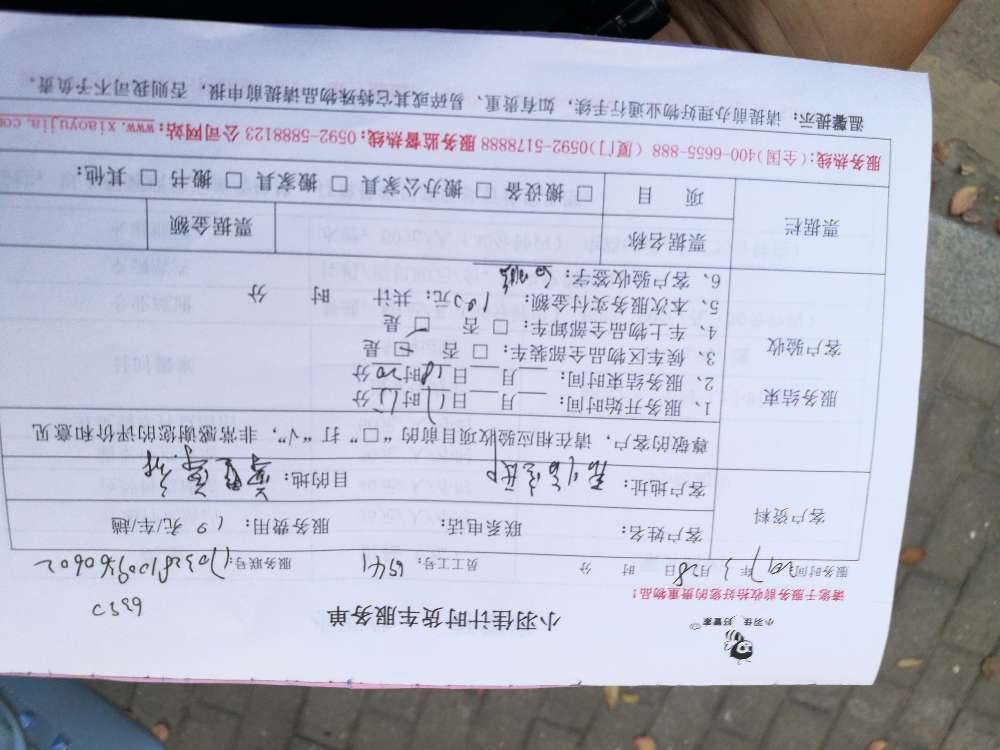 小羽佳 好管家
小羽佳计时货车服务单
6332
请您于服务前收拾好您的贵重物品！
服务时间: 2017年 3 月 28 日 时 分 员工号: 6941 服务联号: 170328100960602
客户资料
客户姓名: 联系电话: 服务费用: 元/车/趟
客户地址: 目的地:
尊敬的客户，请在相应验收项目前的“□”打“√”，非常感谢您的评价和意见
服务结束
客户验收
1、服务开始时间: 月 日 17 时 分
2、服务结束时间: 月 日 18 时 20 分
3、候车区物品全部装车: □ 否 □ 是
4、车上物品全部卸车: □ 否 □ 是
5、本次服务交付金额: 元; 共计 时 分
6、客户验收签字:
票据栏
票据名称 票据金额
项 目 □ 搬设备 □ 搬办公家具 □ 搬家具 □ 搬书 □ 其他:
服务热线:(全国)400-6655-888 (厦门)0592-5178888 服务监督热线: 0592-5888123 公司网站: www.xiaoyujia.com
温馨提示: 请提前办理好物业通行手续，如有贵重、易碎或其它特殊物品请提前申报，否则我司不予负责。